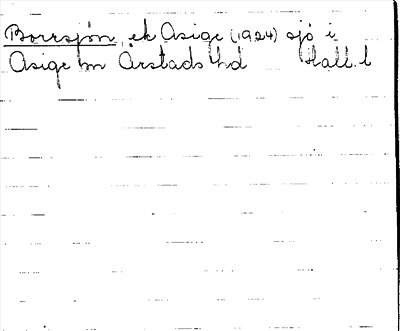 Borrsjön ek Asige (1924) sjö i
Asige sn Årstads hd Hall. l